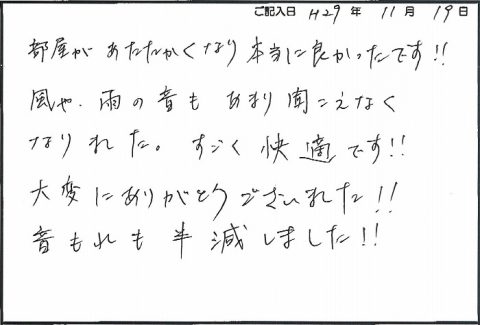 ご記入日 H29年 11月 19日
部屋が あたたかくなり 本当に良かったです!!
風や、雨の音も あまり聞こえなく
なりました。すごく 快適です!!
大変にありがとうございました!!
音もれも 半減しました!!